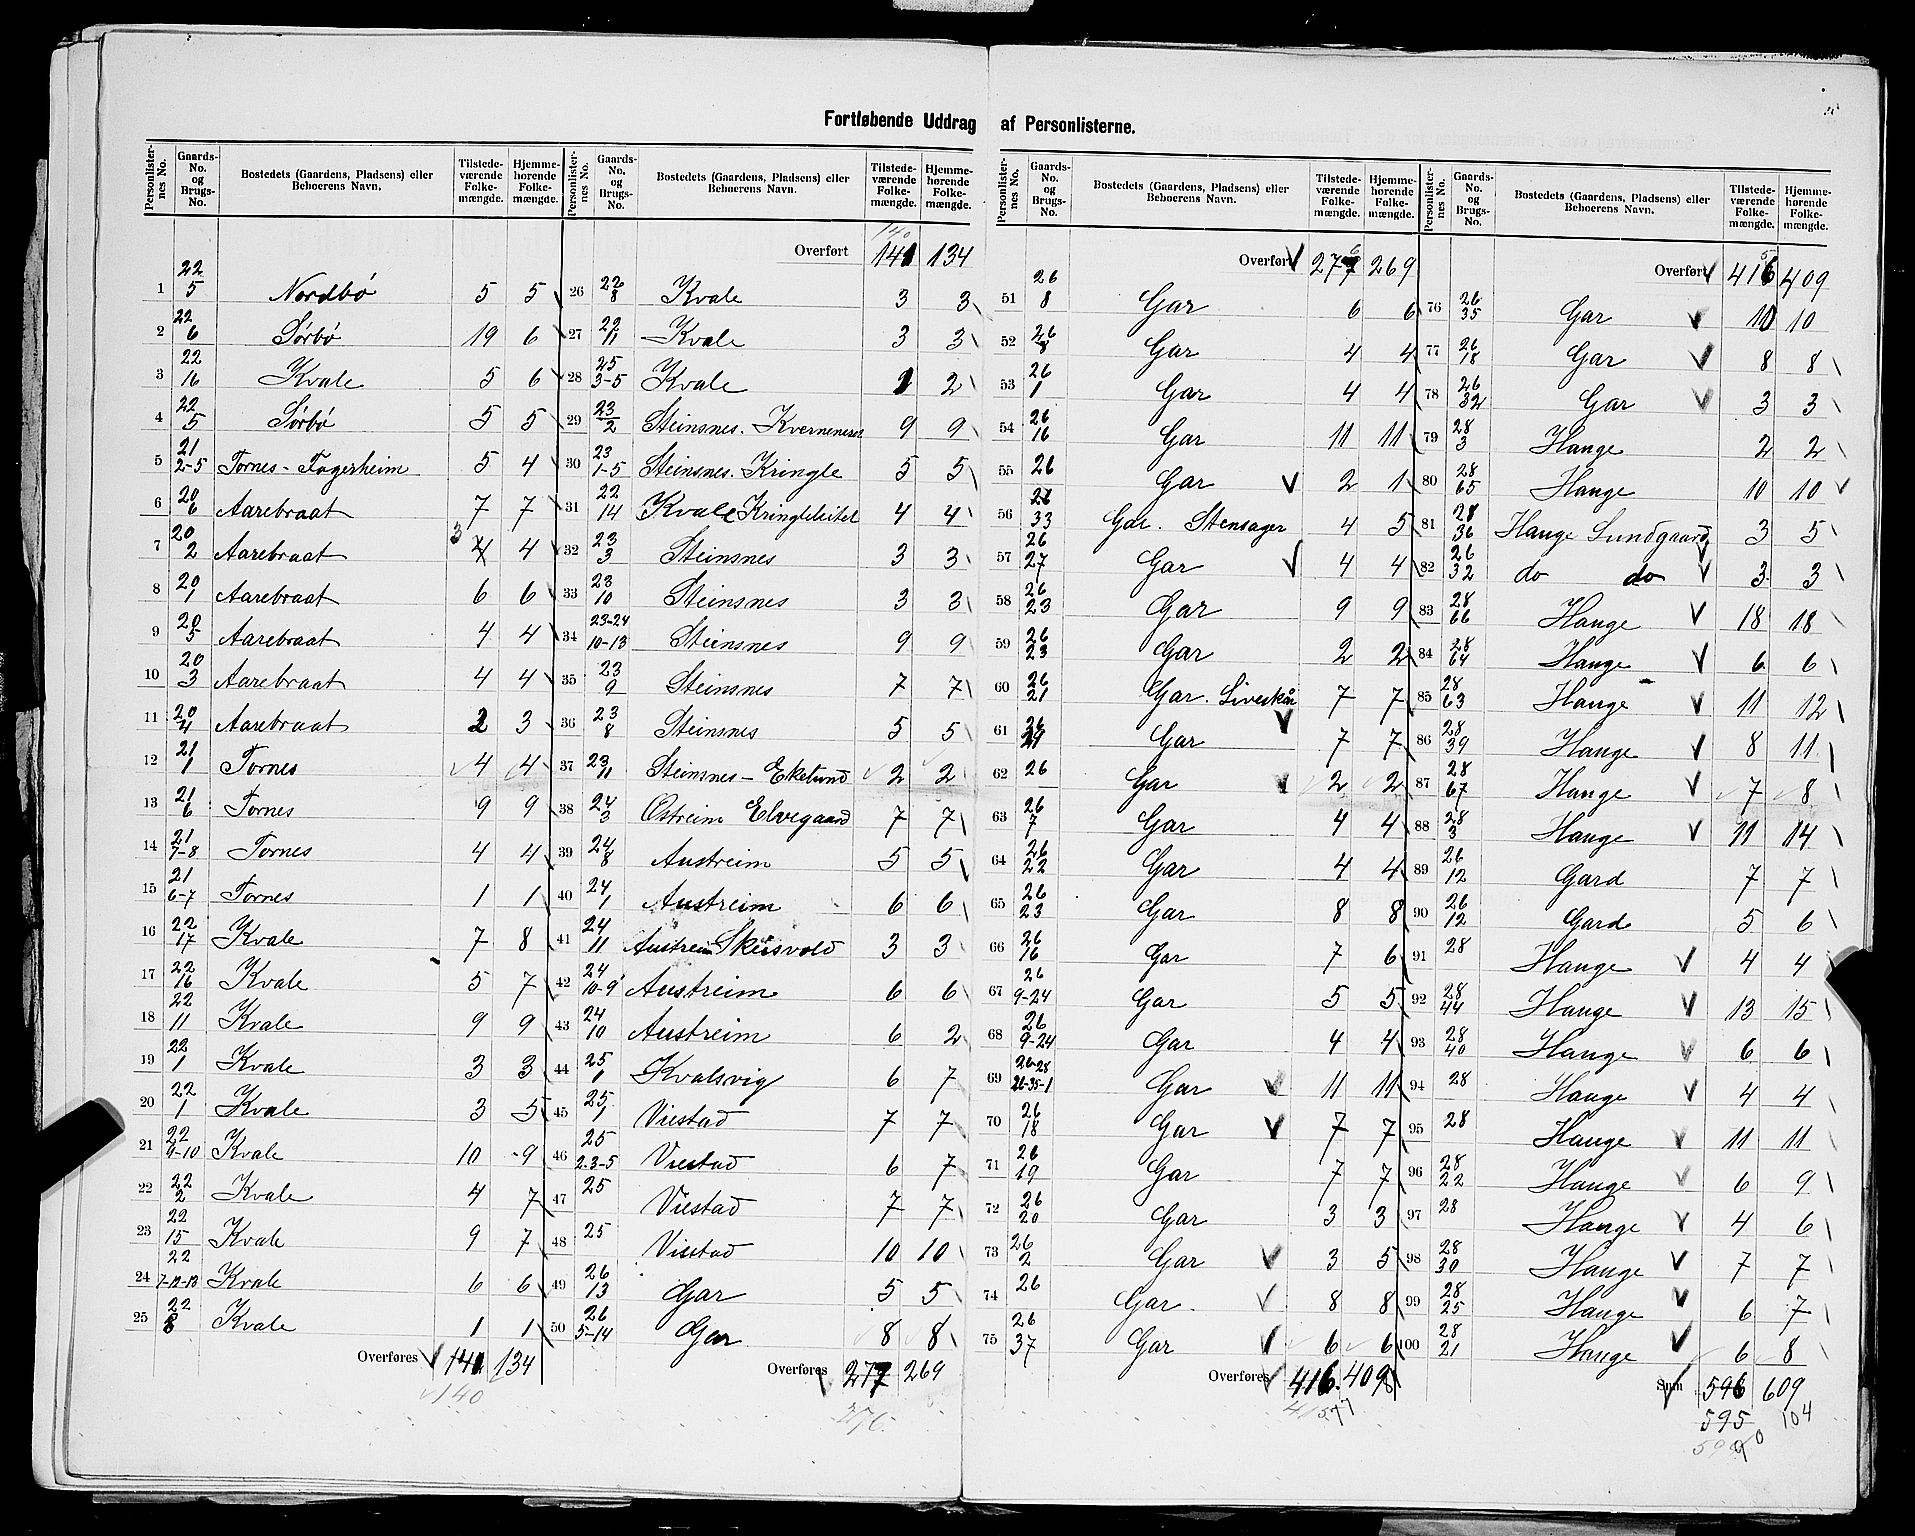 Fortløbende Uddrag af Personlisterne.
Personlisternes No. | Gaards-No. og Brugs-No. | Bostedets (Gaardens, Pladsens) eller Beboerens Navn. | Tilstedeværende Folkemængde. | Hjemmehørende Folkemængde.
1 22/5 Nordbø 5 5
2 22/6 Sørbø 19 6
3 22/16 Kvale 5 6
4 22/5 Sørbø 5 5
5 21/2-5 Tornes - Fagerheim 5 4
6 20/6 Aarebraat 7 7
7 20/2 Aarebraat 3 4 4
8 20/1 Aarebraat 6 6
9 20/5 Aarebraat 4 4
10 20/3 Aarebraat 4 4
11 20/4 Aarebraat 2 3
12 21/1 Tornes 4 4
13 21/6 Tornes 9 9
14 21/7-8 Tornes 4 4
15 21/6-7 Tornes 1 1
16 22/17 Kvale 7 8
17 22/16 Kvale 5 7
18 22/11 Kvale 9 9
19 22/1 Kvale 3 3
20 22/1 Kvale 3 5
21 22/9-10 Kvale 10 9
22 22/2 Kvale 4 7
23 22/15 Kvale 9 7
24 22/7-12-13 Kvale 6 6
25 22/8 Kvale 1 1
Overføres 141 134
140
Personlisternes No. | Gaards-No. og Brugs-No. | Bostedets (Gaardens, Pladsens) eller Beboerens Navn. | Tilstedeværende Folkemængde. | Hjemmehørende Folkemængde.
140
Overført 141 134
26 22/8 Kvale 3 3
27 22/11 Kvale 3 3
28 25/3-5 Kvale 2
29 23/2 Steinsnes. Kverneneset 9 9
30 23/1-5 Steinsnes. Kringle 5 5
31 22/14 Kvale Kringleleitet 4 4
32 23/3 Steinsnes 3 3
33 23/10 Steinsnes 3 3
34 23-24/10-13 Steinsnes 9 9
35 23/9 Steinsnes 7 7
36 23/8 Steinsnes 5 5
37 23/11 Steinsnes - Ekelund 2 2
38 24/3 Østreim Elvegaard 7 7
39 24/8 Austreim 5 5
40 24/1 Austreim 6 6
41 24/11 Austreim Skeisvold 3 3
42 24/10-9 Austreim 6 6
43 24/10 Austreim 6 2
44 25/1 Kvalsvig 6 7
45 25/1 Viestad 7 7
46 25/2.3-5 Viestad 6 7
47 25 Viestad 7 7
48 25 Viestad 10 10
49 26/13 Gar 5 5
50 26/5-14 Gar 8 8
Overføres 277 269
276
Personlisternes No. | Gaards-No. og Brugs-No. | Bostedets (Gaardens, Pladsens) eller Beboerens Navn. | Tilstedeværende Folkemængde. | Hjemmehørende Folkemængde.
Overført 277 269
51 26/8 Gar 6 6
52 26/8 Gar 4 4
53 26/1 Gar 4 4
54 26/16 Gar 11 11
55 26 Gar 2 1
56 26/33 Gar. Stensager 4 5
57 26/27 Gar 4 4
58 26/23 Gar 9 9
59 26/23 Gar 2 2
60 26/21 Gar. Siveskin 7 7
61 26 Gar 7 7
62 26 Gar 2 2
63 26/7 Gar 4 4
64 26/22 Gar 4 4
65 26/23 Gar 8 8
66 26/16 Gar 7 6
67 26/9-24 Gar 5 5
68 26/9-24 Gar 4 4
69 26-28/26-35-1 Gar 11 11
70 26/18 Gar 7 7
71 26/19 Gar 7 7
72 26/20 Gar 3 3
73 26/2 Gar 3 5
74 26 Gar 8 8
75 26/37 Gar 6 6
Overføres 416 409
Personlisternes No. | Gaards-No. og Brugs-No. | Bostedets (Gaardens, Pladsens) eller Beboerens Navn. | Tilstedeværende Folkemængde. | Hjemmehørende Folkemængde.
Overført 416 409
76 26/35 Gar 10 10
77 26/18 Gar 8 8
78 26/32 Gar 3 3
79 28/3 Hauge 2 2
80 28/65 Hauge 10 10
81 28/36 Hauge Lundgaard 3 5
82 26/32 do do 3 3
83 28/66 Hauge 18 18
84 28/64 Hauge 6 6
85 28/63 Hauge 11 12
86 28/39 Hauge 8 11
87 28/67 Hauge 7 8
88 28/3 Hauge 11 14
89 26/12 Gard 7 7
90 26/12 Gard 5 6
91 28 Hauge 4 4
92 28/44 Hauge 13 15
93 28/40 Hauge 6 6
94 28 Hauge 4 4
95 28 Hauge 11 11
96 28/22 Hauge 6 9
97 28 Hauge 4 6
98 28/30 Hauge 7 7
99 28/25 Hauge 6 7
100 28/21 Hauge 6 8
Sum 596 609
595 104